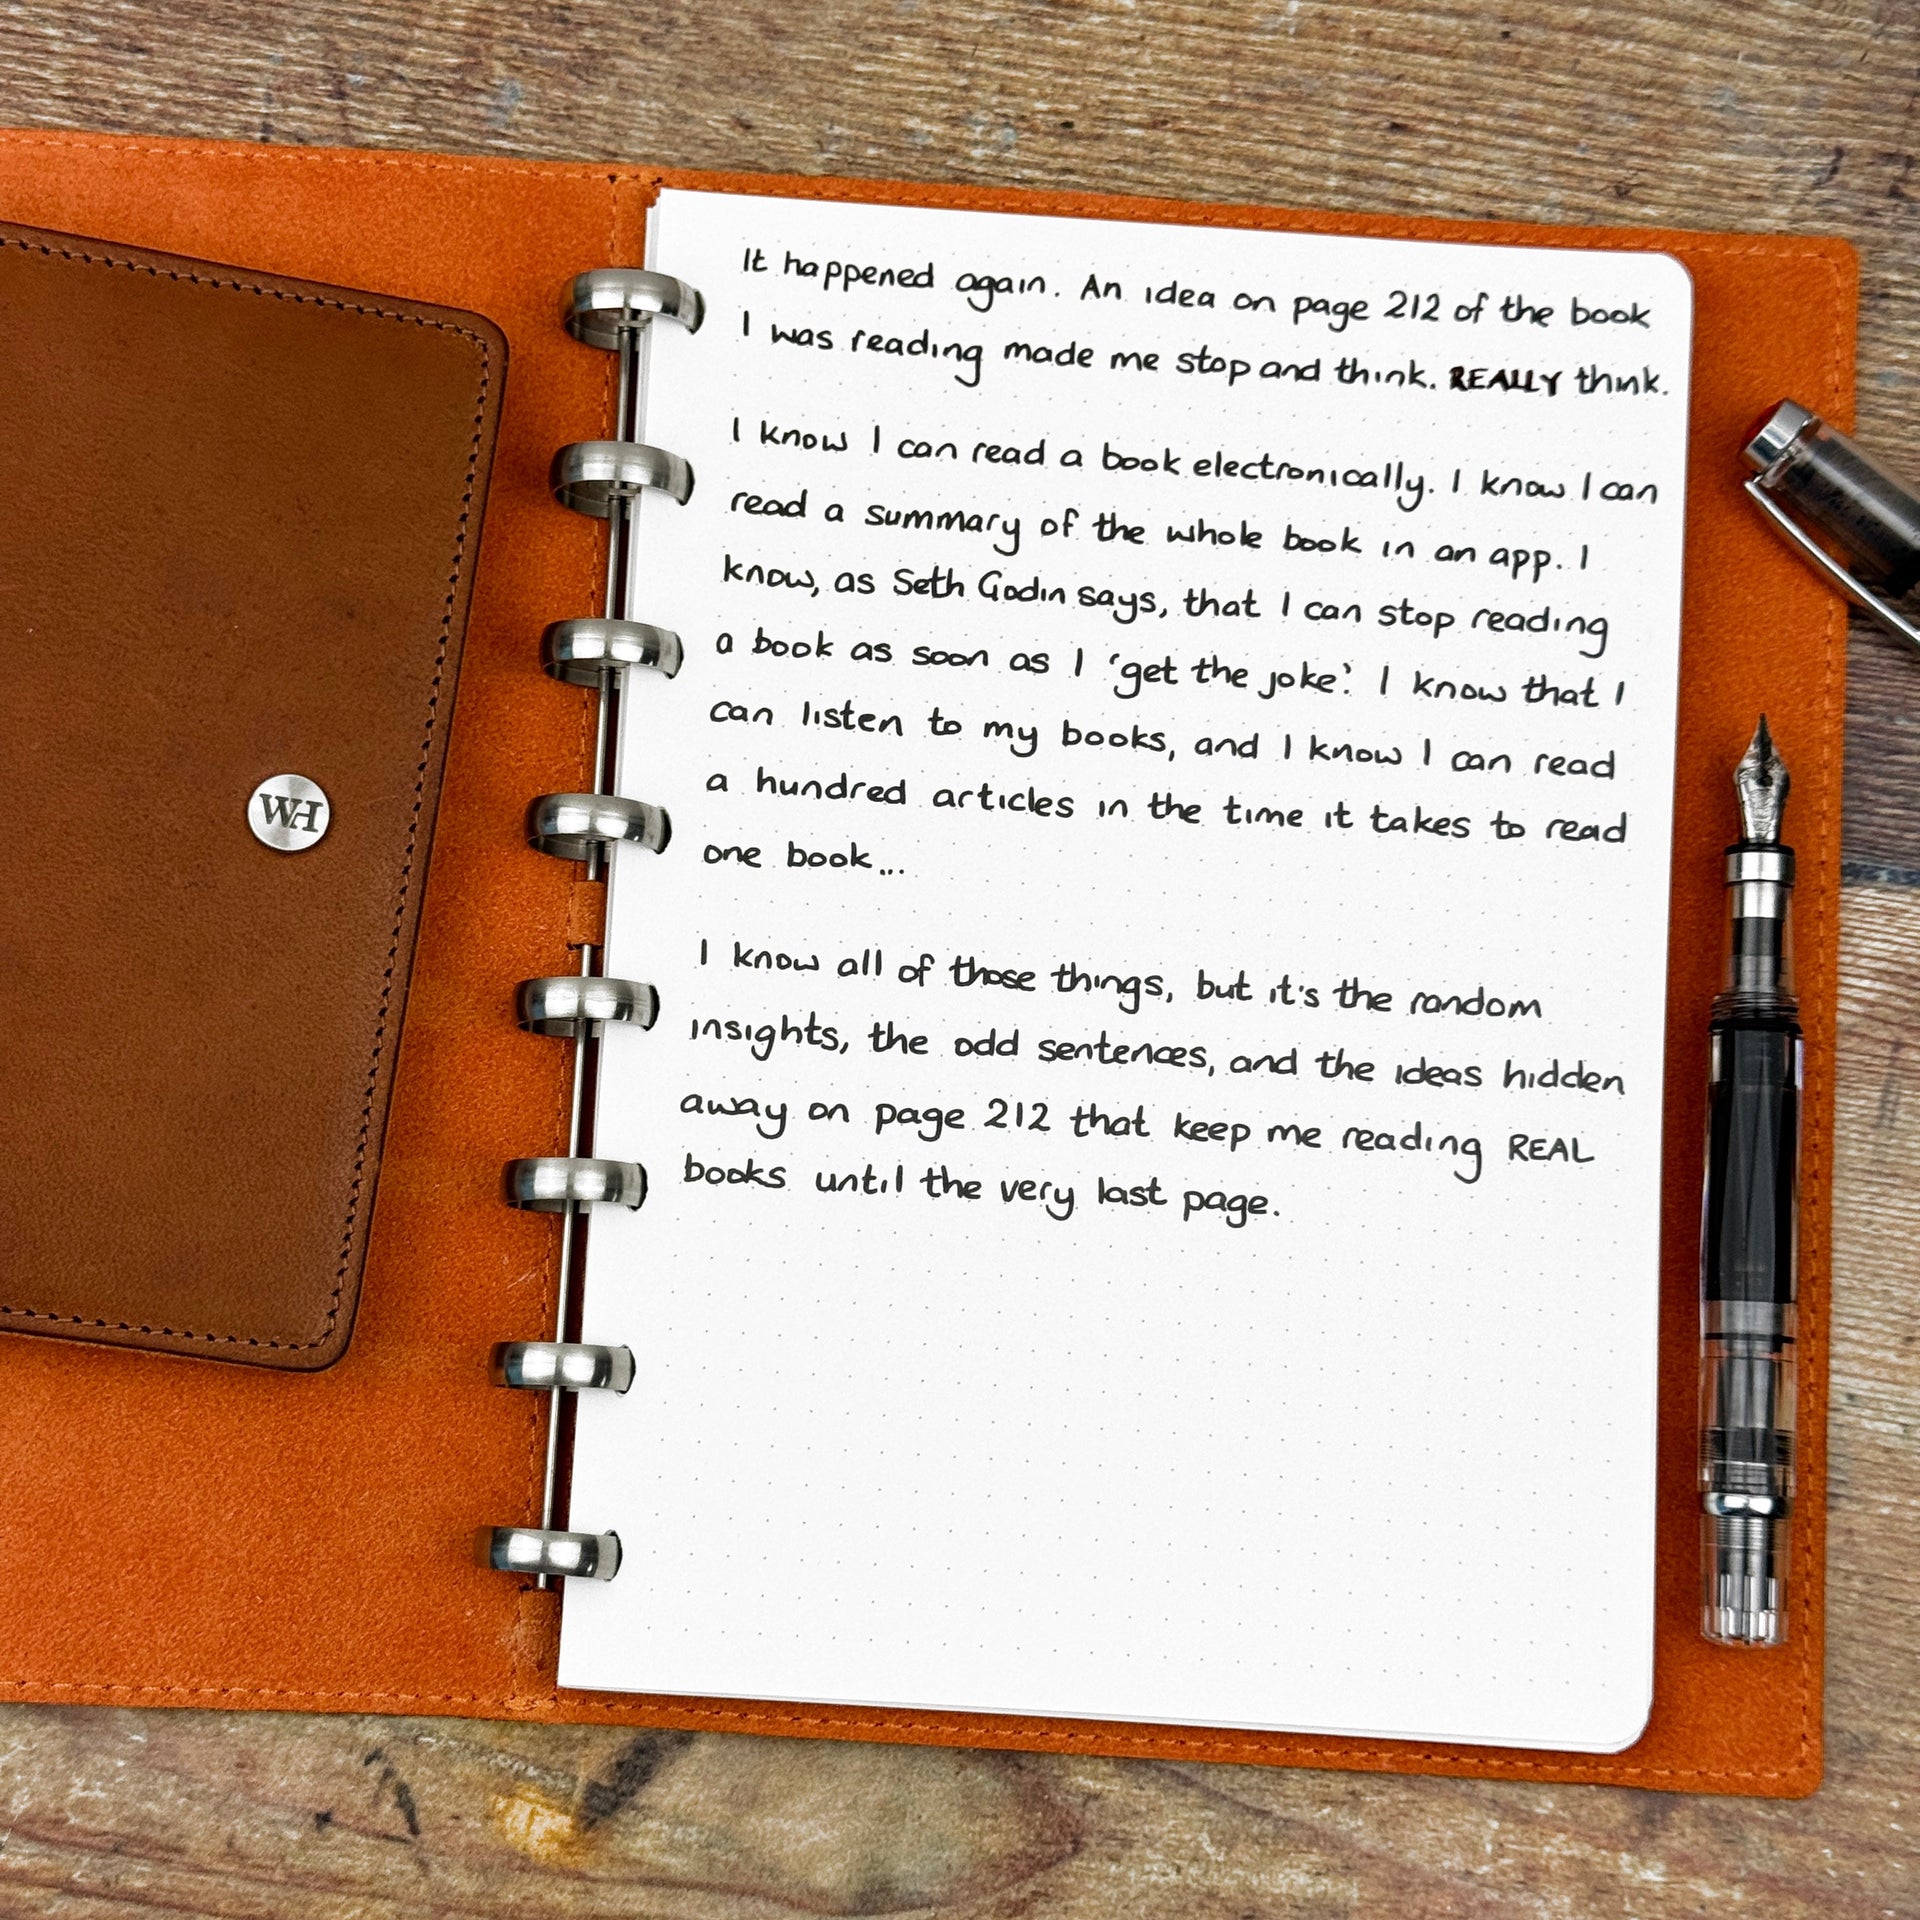 It happened again. An idea on page 212 of the book
I was reading made me stop and think. REALLY think.
I know I can read a book electronically. I know I can
read a summary of the whole book in an app. I
know, as Seth Godin says, that I can stop reading
a book as soon as I 'get the joke'. I know that I
can listen to my books, and I know I can read
a hundred articles in the time it takes to read
one book...
I know all of those things, but it's the random
insights, the odd sentences, and the ideas hidden
away on page 212 that keep me reading REAL
books until the very last page.
WH